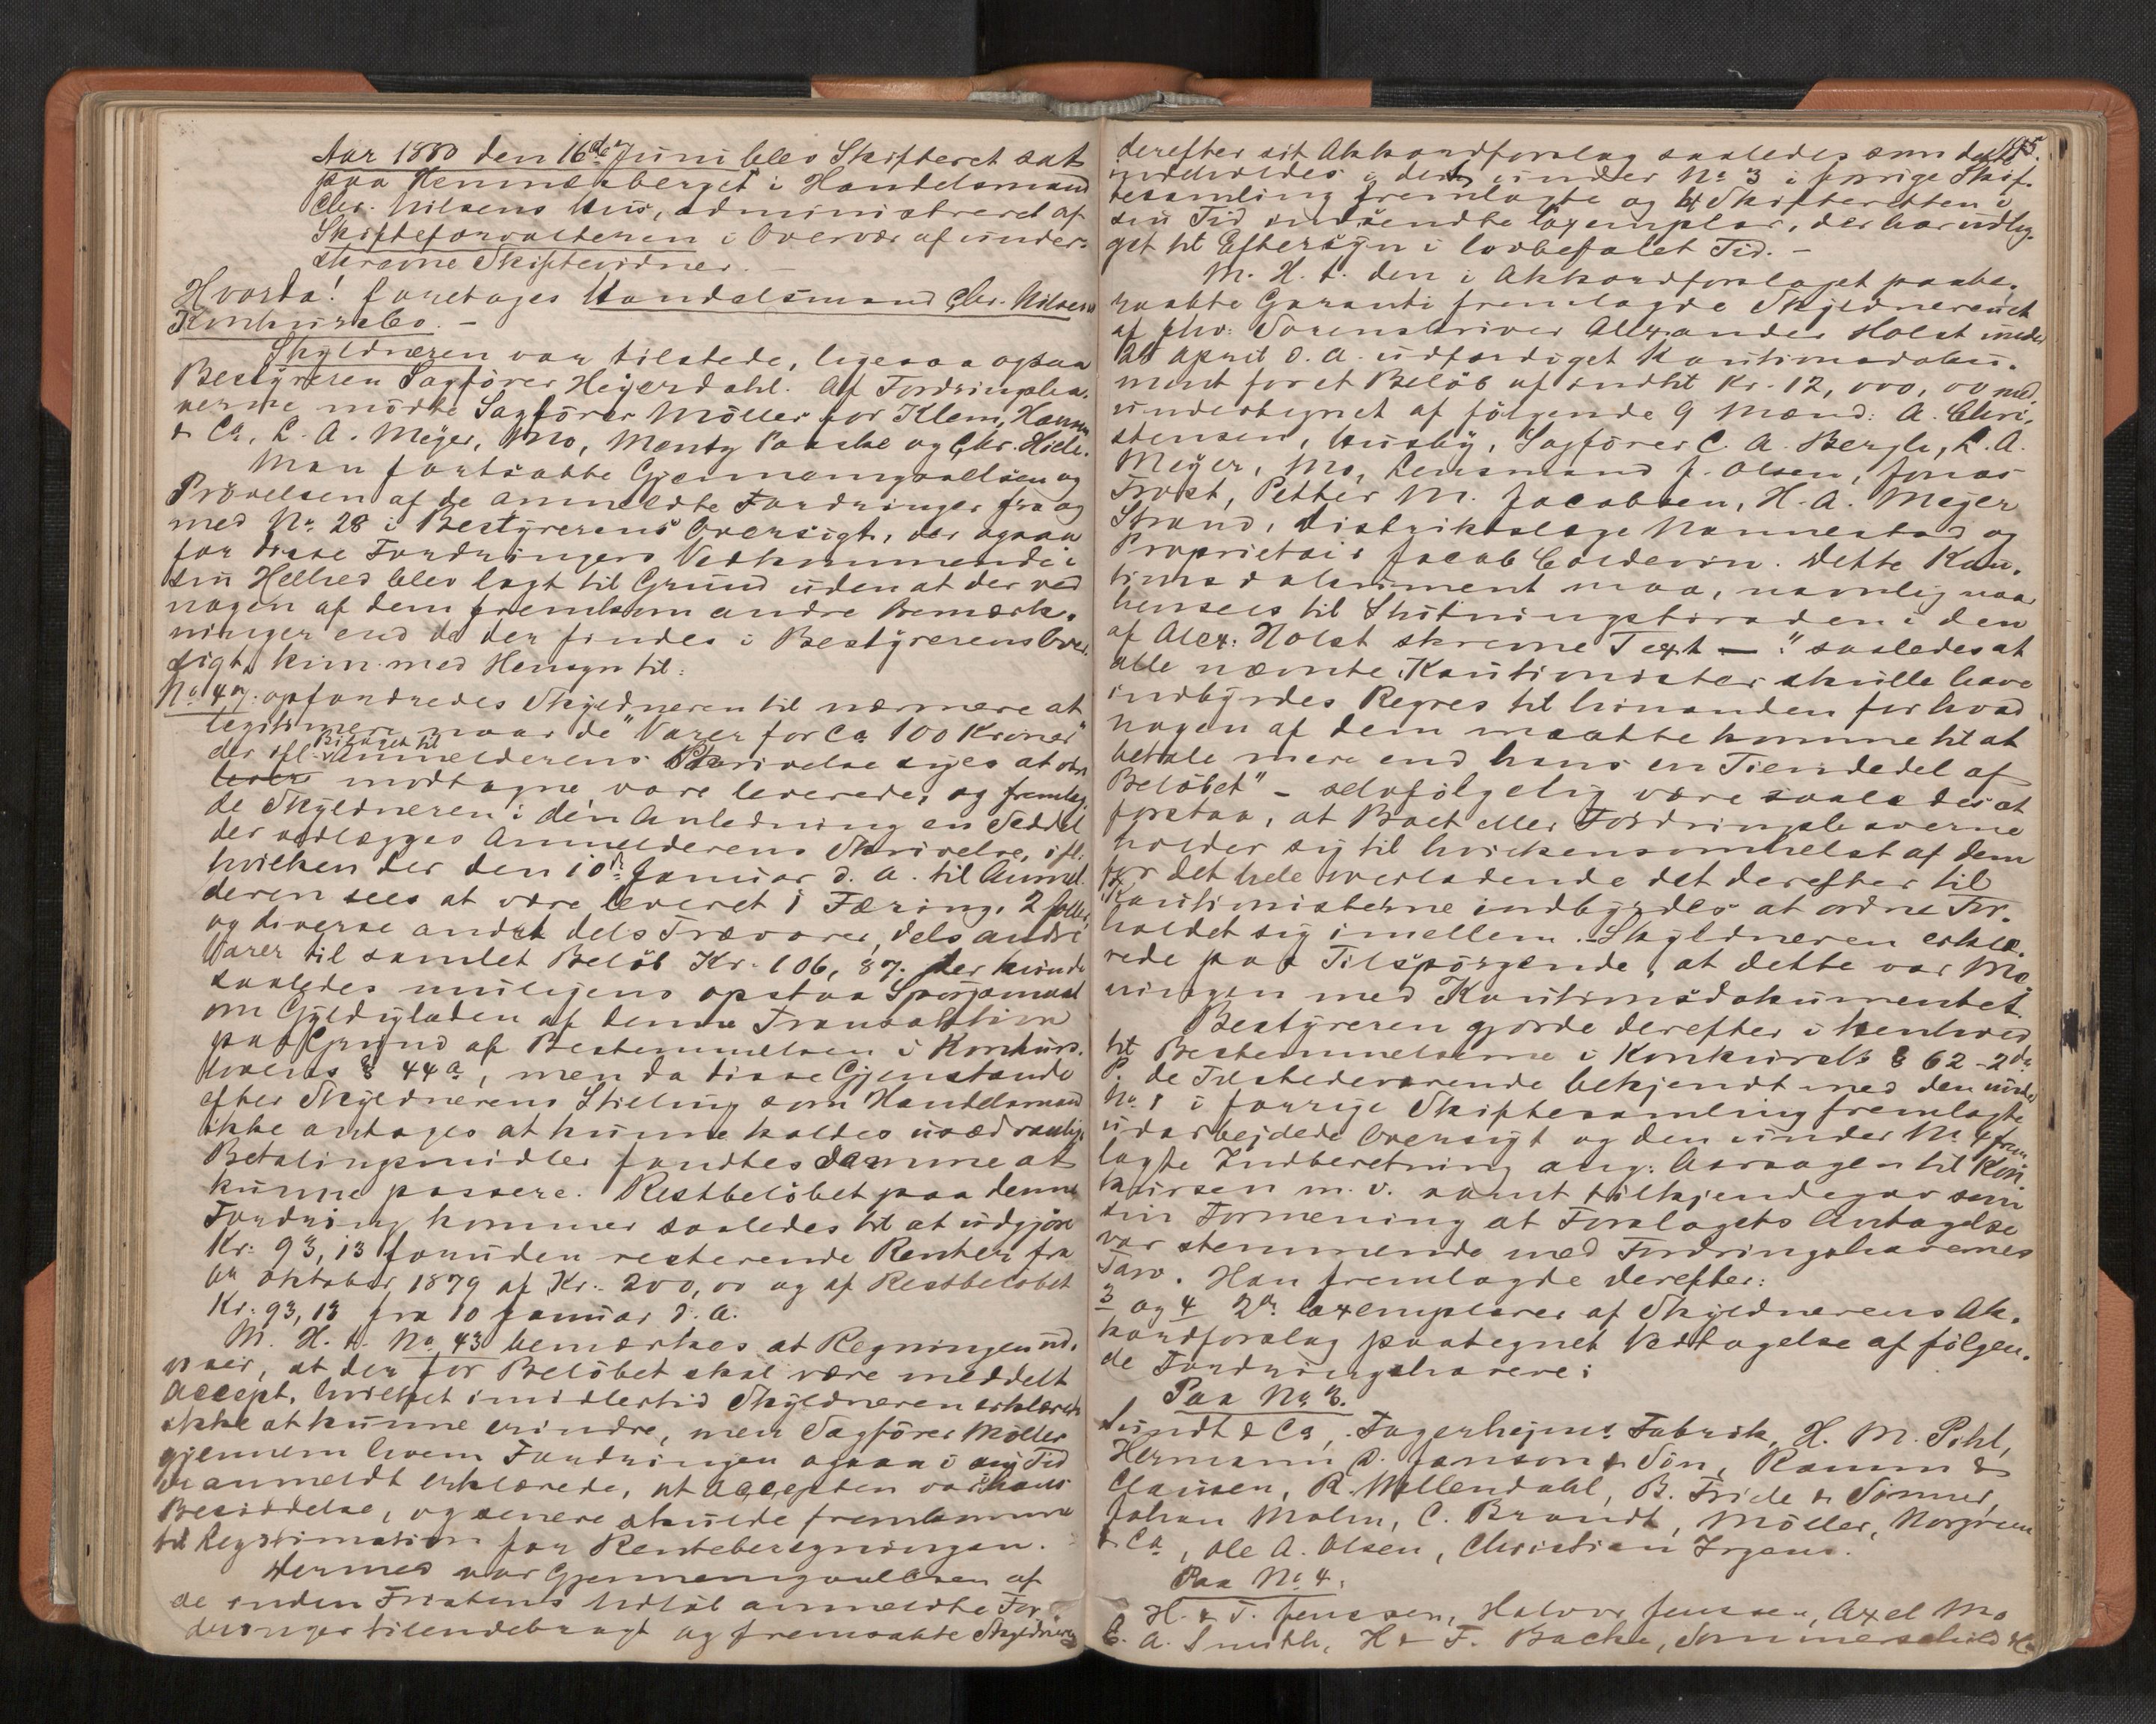 Aar 1880 den 16de Juni blev Skifteret sat
paa Hemnæsberget i Handelsmand
Chr. Nilsens Hus, administreret af
Skifteforvalteren i Overvær af under-
skrevne Skiftevidner. –
Hvorda! foretoges Handelsmand Chr. Nilsens
Konkursbo. –
Skyldneren var tilstede, ligesaa ogsaa
Bestyreren Sagfører Heyerdahl. Af Fordringsha-
verne mødte Sagfører Møller for Klem, Hansen
& Co, L. A. Meyer, Mo, Mentz Paaske og Chr. Hjelle.
Man fortsatte Gjennemgaaelsen og
Prøvelsen af de anmeldte Fordringer fra og
med No 28 i Bestyrerens Oversigt, der ogsaa
for disse Fordringers Vedkommende i
sin Helhed blev lagt til Grund uden at der ved
nogen af dem fremkom andre Bemærk-
ninger end de der findes i Bestyrerens Over-
sigt, kun med Hensyn til:
No 49. opfordredes Skyldneren til nærmere at
legitimere naar de "Varer for Ca 100 Kroner"
der ifl. Bilaget til Anmelderens Skrivelse siges at være
modtagne vare leverede, og fremlag-
de Skyldneren i den Anledning en Seddel
der vedlægges Anmelderens Skrivelse, ifl.
hvilken der den 10de Januar d. A. til Anmel-
deren sees at være leveret 1 Færing, 2
og diverse andet dels Trævarer, dels andre
Varer til samlet Beløb Kr. 106,87. Der kunde
saaledes muligens opstaa Spørgsmaal
om Gyldigheden af denne Transaktion
paa Grund af Bestemmelsen i Konkurs-
lovens § 44a, men da disse Gjenstande
efter Skyldnerens Stilling som Handelsmand
ikke antages at kunne kaldes usædvanlige
Betalingsmidler fandtes samme at
kunne passere. Restbeløbet paa denne
Fordring kommer saaledes til at udgjøre
Kr. 93,13 foruden resterende Renter fra
Oktober 1879 af Kr. 200,00 og af Restbeløbet
Kr. 93,13 fra 10 Januar d. A.
M. H. t. No 43 bemærkes at Regningen ud-
viser, at der for Beløbet skal være meddelt
Accept, hvilket imidlertid Skyldneren erklærede
ikke at kunne erindre, men Sagfører Møller
gjennem hvem Fordringen ogsaa i sin Tid
er anmeldt erklærede, at Accepten var i hans
Besiddelse, og senere skulde fremkomme
til Legitimation for Renteberegningen.
Hermed var Gjennemgaaelsen af
de inden Fristens Udløb anmeldte For-
dringer tilendebragt og fremsatte Skyldneren
195.
derefter sit Akkordforslag saaledes som dette
indeholdes i det under No 3 i forrige Skif-
tesamling fremlagte og til Skifteretten i
sin Tid indsendte Exemplar, der har udlig-
get til Eftersyn i lovbefalet Tid. –
M. H. t. den i Akkordforslaget paabe-
raabte Garanti fremlagde Skyldneren et
af fhv. Sorenskriver Alexander Holst under
28 April d. A. udfærdiget Kautionsdoku-
ment for et Beløb af indtil Kr. 12,000,00 med
undertegnet af følgende 9 Mænd: A. Chri-
stensen, Husby, Sagfører C. A. Bergh, L. A.
Meyer, Mo, Lensmand J. Olsen, Jonas
Frost, Petter M. Jacobsen, H. A. Meyer
Strand, Distriktslæge Nannestad og
Proprietair Jacob Coldevin. Dette Kau-
tionsdokument maa, navnlig naar
hensees til Slutningstiraden i den
af Alex. Holst skrevne Text – : "saaledes at
alle nævnte Kautionister skulle have
indbyrdes Regres til hinanden for hvad
nogen af dem maatte komme til at
betale mere end hans en Tiendedel af
Beløbet" – selvfølgelig være saaledes at
forstaa, at Boet eller Fordringshaverne
holder sig til hvilkensomhelst af dem
for det hele overladende det derefter til
Kautionisterne indbyrdes at ordne For-
holdet sig imellem. – Skyldneren erklæ-
rede paa Tilspørgende, at dette var Me-
ningen med Kautionsdokumentet.
Bestyreren gjorde derefter i Henhold
til Bestemmelserne i Konkursl. § 62 – 2de
P. de Tilstedeværende bekjendt med den under
No 1 i forrige Skiftesamling fremlagte
udarbejdede Oversigt og den under No 4 frem-
lagte Indberetning ang: Aarsagen til Kon-
kursen m. v. samt tilkjendegav som
sin Formening at Forslagets Antagelse
var stemmende med Fordringshavernes
Tarv. Han fremlagde derefter:
3 og 4 2de Exemplarer af Skyldnerens Ak-
kordforslag paategnet Vedtagelse af følgen-
de Fordringshavere:
Paa No 3.
Lundt & Co, Fagerheims Fabrik, H. M. Pihl,
Hermann D. Janson & Søn, Ramm &
Clausen, R. Mellendahl, B. Friele & Sønner,
Johan Malm, C. Brandt, Møller, Norgreen
& Co, Ole A. Olsen, Christian Irgens.
Paa No 4.
H. & T. Jenssen, Halvor Jenssen, Axel Mo
E. A. Smith, H & F. Bachke, Sommerschild & Co